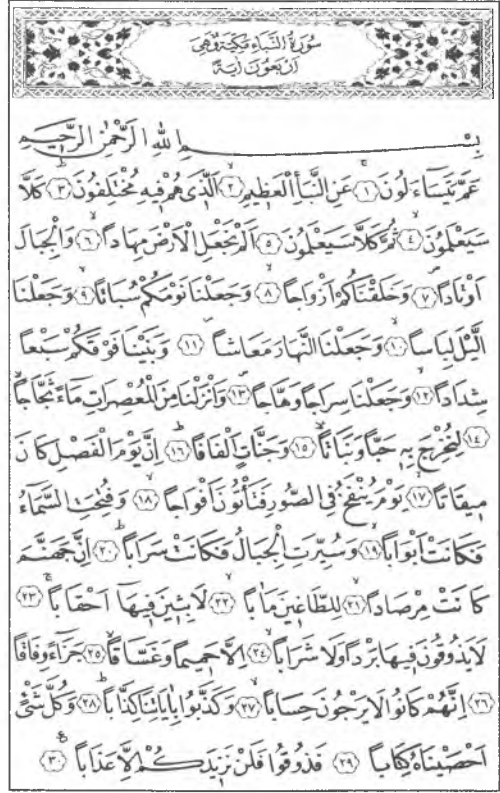 سُورَةُ النَّبَأِ مَكِّيَّةٌ وَهِيَ
اَرْبَعُونَ اٰيَةً
بِسْمِ اللّٰهِ الرَّحْمٰنِ الرَّحِيمِ
عَمَّ يَتَسَاءَلُونَ ﴿١﴾ عَنِ النَّبَأِ الْعَظِيمِ ﴿٢﴾ اَلَّذِى هُمْ فِيهِ مُخْتَلِفُونَ ﴿٣﴾ كَلَّا
سَيَعْلَمُونَ ﴿٤﴾ ثُمَّ كَلَّا سَيَعْلَمُونَ ﴿٥﴾ اَلَمْ نَجْعَلِ الْاَرْضَ مِهَاداً ﴿٦﴾ وَالْجِبَالَ
اَوْتَاداً ﴿٧﴾ وَخَلَقْنَاكُمْ اَزْوَاجاً ﴿٨﴾ وَجَعَلْنَا نَوْمَكُمْ سُبَاتاً ﴿٩﴾ وَجَعَلْنَا
الَّيْلَ لِبَاساً ﴿١٠﴾ وَجَعَلْنَا النَّهَارَ مَعَاشاً ﴿١١﴾ وَبَنَيْنَا فَوْقَكُمْ سَبْعاً
شِدَاداً ﴿١٢﴾ وَجَعَلْنَا سِرَاجاً وَهَّاجاً ﴿١٣﴾ وَاَنْزَلْنَا مِنَ الْمُعْصِرَاتِ مَاءً ثَجَّاجاً
﴿١٤﴾ لِنُخْرِجَ بِهِ حَبّاً وَنَبَاتاً ﴿١٥﴾ وَجَنَّاتٍ اَلْفَافاً ﴿١٦﴾ اِنَّ يَوْمَ الْفَصْلِ كَانَ
مِيقَاتاً ﴿١٧﴾ يَوْمَ يُنْفَخُ فِى الصُّورِ فَتَأْتُونَ اَفْوَاجاً ﴿١٨﴾ وَفُتِحَتِ السَّمَاءُ
فَكَانَتْ اَبْوَاباً ﴿١٩﴾ وَسُيِّرَتِ الْجِبَالُ فَكَانَتْ سَرَاباً ﴿٢٠﴾ اِنَّ جَهَنَّمَ
كَانَتْ مِرْصَاداً ﴿٢١﴾ لِلطَّاغِينَ مَاٰباً ﴿٢٢﴾ لَابِثِينَ فِيهَا اَحْقَاباً ﴿٢٣﴾
لَا يَذُوقُونَ فِيهَا بَرْداً وَلَا شَرَاباً ﴿٢٤﴾ اِلَّا حَمِيماً وَغَسَّاقاً ﴿٢٥﴾ جَزَاءً وِفَاقاً
﴿٢٦﴾ اِنَّهُمْ كَانُوا لَا يَرْجُونَ حِسَاباً ﴿٢٧﴾ وَكَذَّبُوا بِاٰيَاتِنَا كِذَّاباً ﴿٢٨﴾ وَكُلَّ شَيْءٍ
اَحْصَيْنَاهُ كِتَاباً ﴿٢٩﴾ فَذُوقُوا فَلَنْ نَزِيدَكُمْ اِلَّا عَذَاباً ﴿٣٠﴾